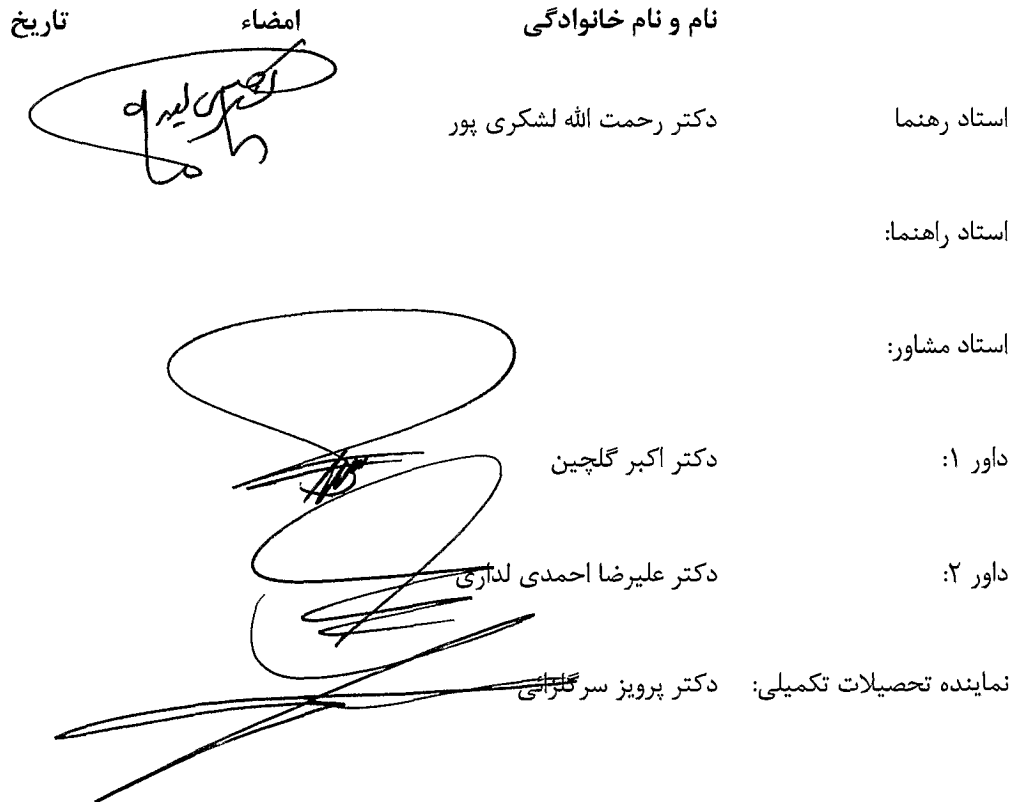 نام و نام خانوادگی امضاء تاریخ
استاد رهنما دکتر رحمت الله لشکری پور
استاد راهنما:
استاد مشاور:
داور ۱: دکتر اکبر گلچین
داور ۲: دکتر علیرضا احمدی لداری
نماینده تحصیلات تکمیلی: دکتر پرویز سرگلزائی